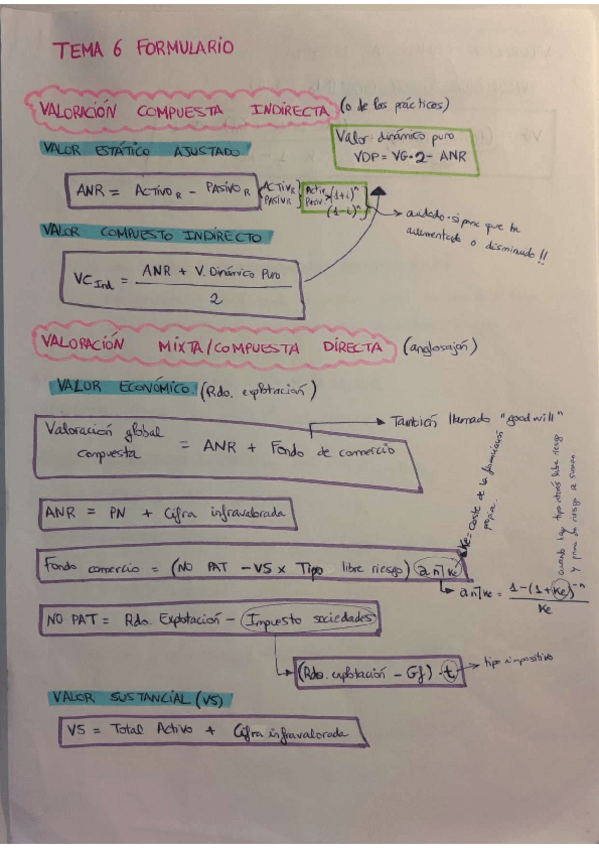 TEMA 6 FORMULARIO
VALORACIÓN COMPUESTA INDIRECTA (o de los prácticos)
Valor dinámico puro
VDP = VG·2 - ANR
VALOR ESTÁTICO AJUSTADO
ANR = ACTIVO R - PASIVO R { ACTIVR PASIVR } Activ Pasiv (1+i)^n (1-i)^n
cuidado·si pone que ha
aumentado o disminuido!!
VALOR COMPUESTO INDIRECTO
VC Ind = ANR + V. Dinámico Puro
2
VALORACIÓN MIXTA/COMPUESTA DIRECTA (anglosajón)
VALOR ECONÓMICO (Rdo. explotación)
También llamado "good will"
Valoración global
compuesta = ANR + Fondo de comercio
ANR = PN + Cifra infravalorada
Ke = coste de la financiación
propia.
cuando hay tipo interés libre riesgo
y prima de riesgo se suman
Fondo comercio = (NO PAT - VS x Tipo libre riesgo) an¬Ke
an¬Ke = 1-(1+Ke)^-n
Ke
NO PAT = Rdo. Explotación - Impuesto sociedades
(Rdo. explotación - Gf) · t → tipo impositivo
VALOR SUSTANCIAL (VS)
VS = Total Activo + Cifra infravalorada